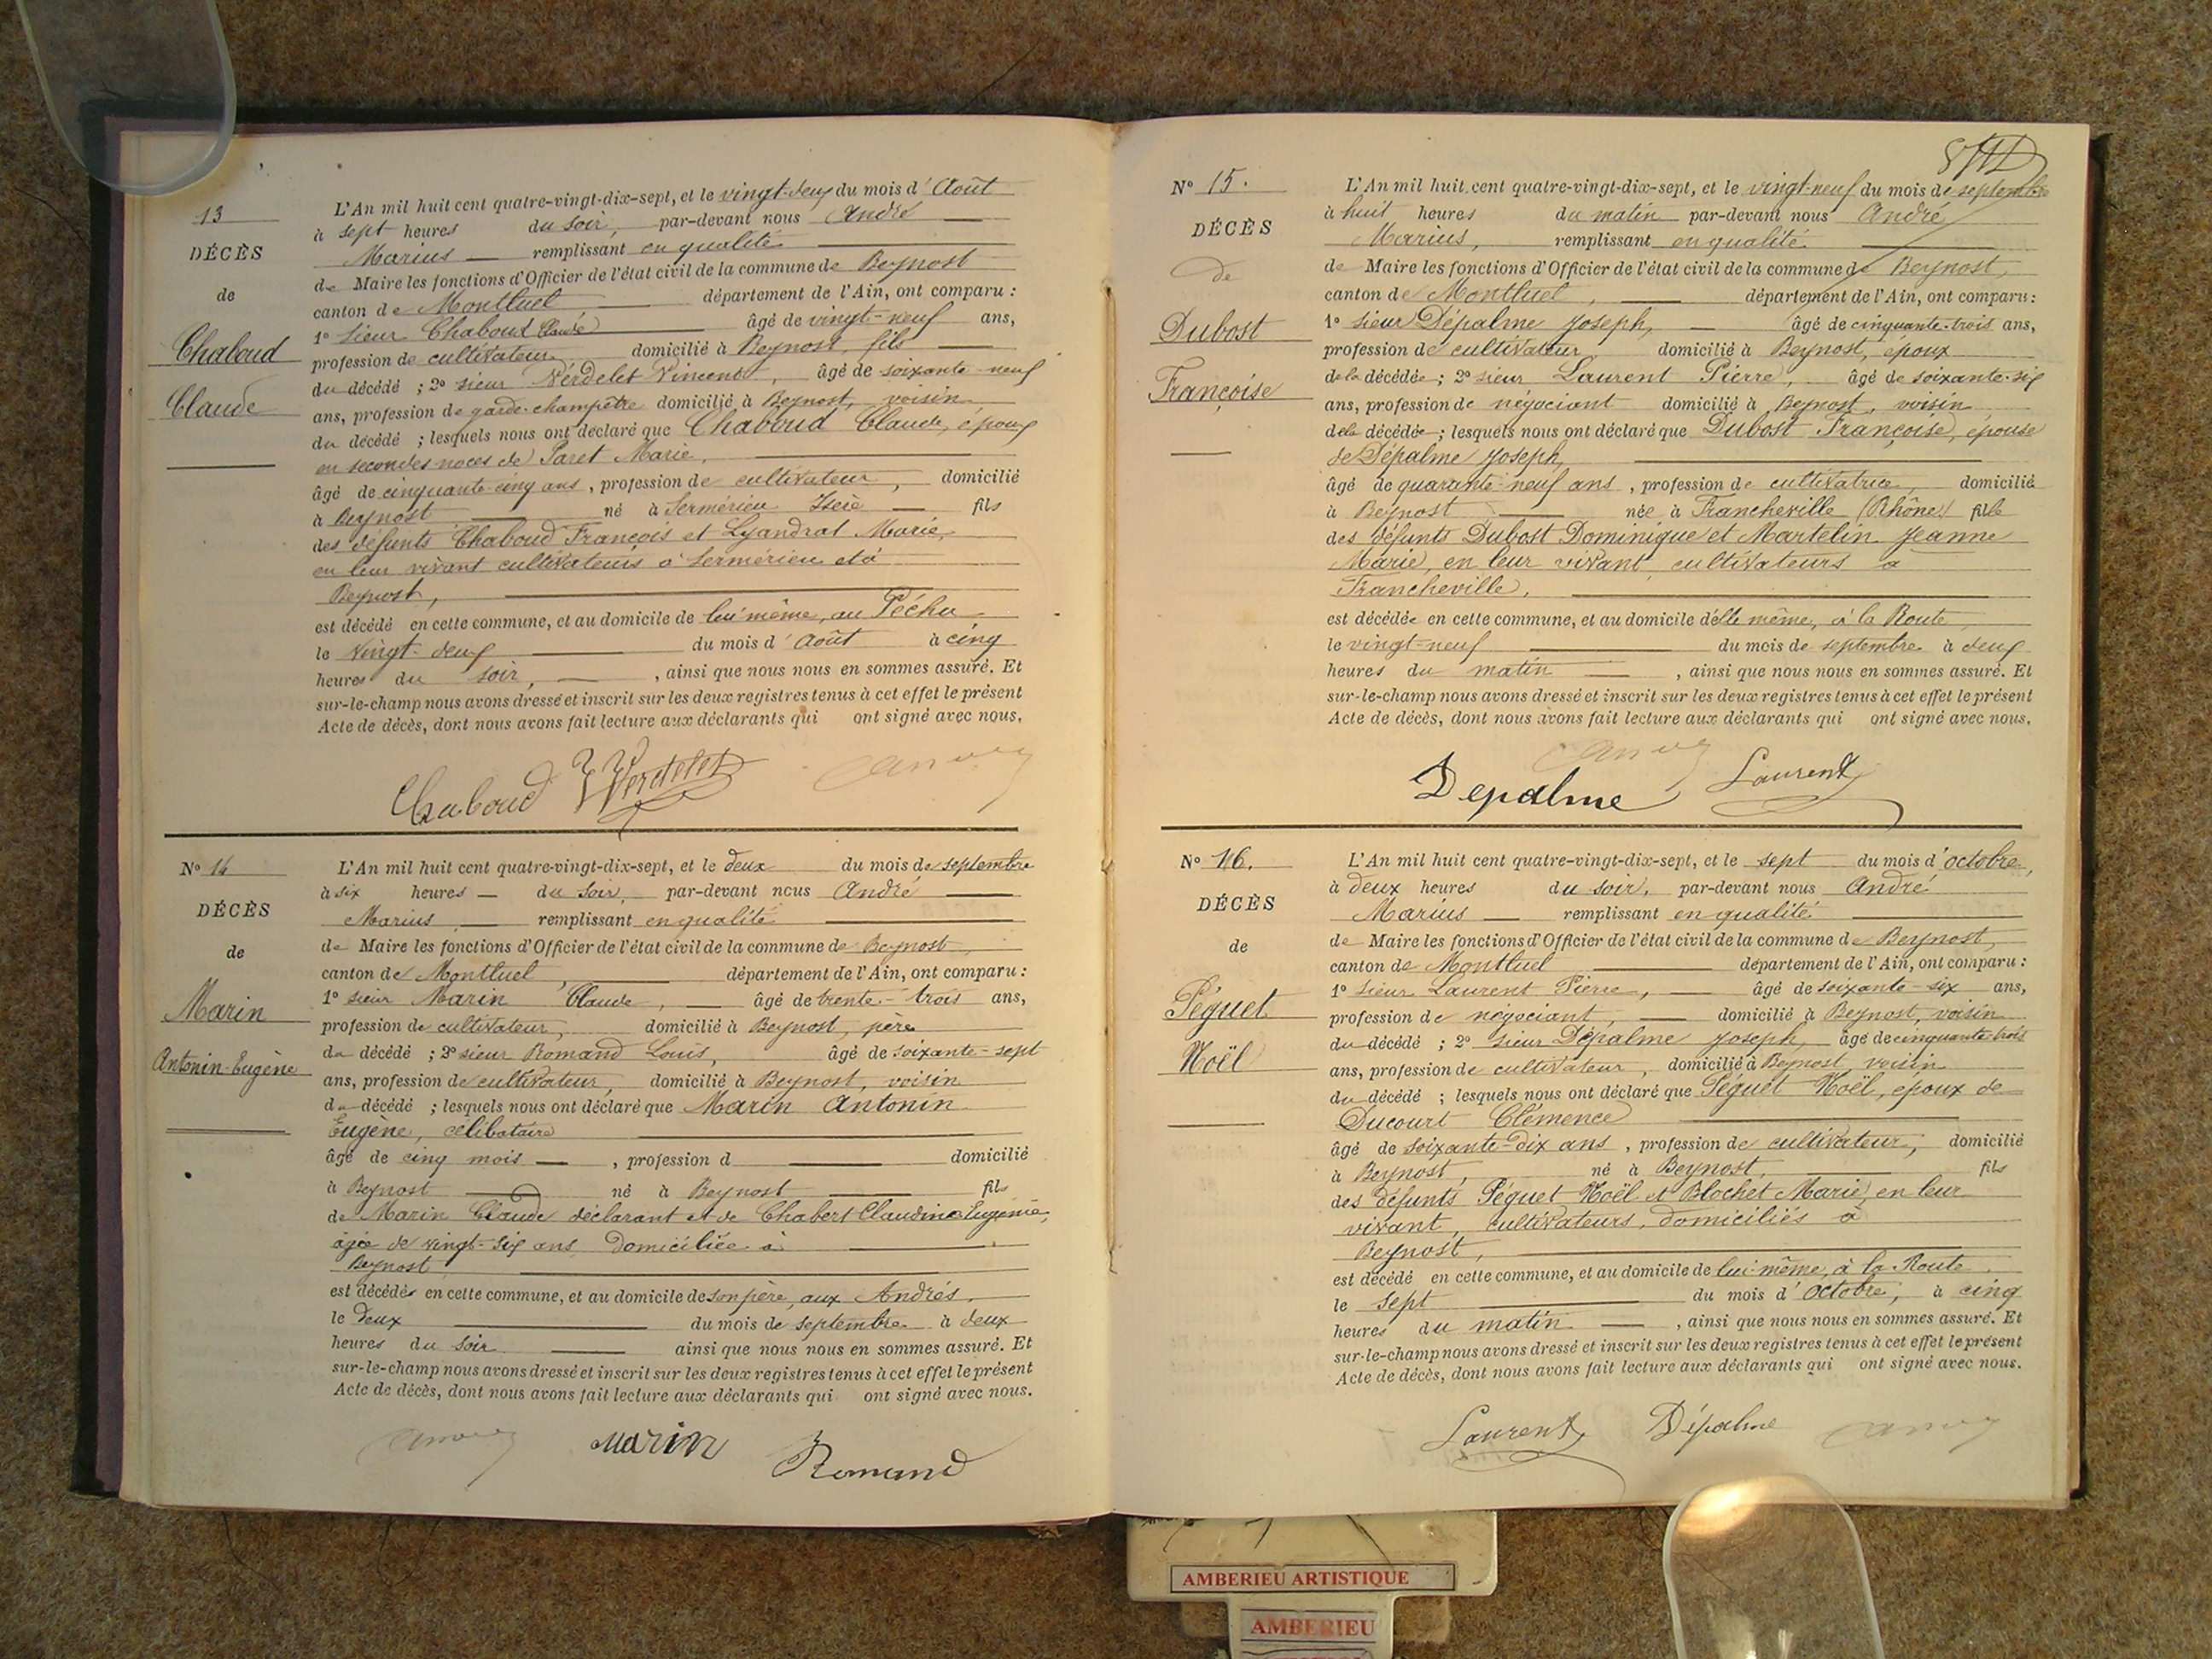 13
DÉCÈS
de
Chaboud
Claude
L'An mil huit cent quatre-vingt-dix-sept, et le vingt-deux du mois d'Août
à sept heures du soir, par-devant nous André
Marius remplissant en qualité
de Maire les fonctions d'Officier de l'état civil de la commune de Beynost
canton de Montluel département de l'Ain, ont comparu :
1° sieur Chaboud Claude âgé de vingt-neuf ans,
profession de cultivateur domicilié à Beynost, fils
du décédé ; 2° sieur Verdelet Vincent, âgé de soixante-neuf
ans, profession de garde-champêtre domicilié à Beynost, voisin
du décédé ; lesquels nous ont déclaré que Chaboud Claude, époux
en secondes noces de Paret Marie,
âgé de cinquante-cinq ans, profession de cultivateur, domicilié
à Beynost né à Sermérieu Isère fils
des défunts Chaboud François et Lyandrat Marie,
en leur vivant cultivateurs à Sermérieu et à
Beynost,
est décédé en cette commune, et au domicile de lui même, au Péchu
le vingt-deux du mois d'Août à cinq
heures du soir, , ainsi que nous nous en sommes assuré. Et
sur-le-champ nous avons dressé et inscrit sur les deux registres tenus à cet effet le présent
Acte de décès, dont nous avons fait lecture aux déclarants qui ont signé avec nous.
Chaboud Verdelet
N° 14
DÉCÈS
de
Marin
Antonin-Eugène
L'An mil huit cent quatre-vingt-dix-sept, et le deux du mois de septembre
à six heures du soir, par-devant nous André
Marius remplissant en qualité
de Maire les fonctions d'Officier de l'état civil de la commune de Beynost
canton de Montluel, département de l'Ain, ont comparu :
1° sieur Marin Claude, âgé de trente-trois ans,
profession de cultivateur, domicilié à Beynost, père
du décédé ; 2° sieur Romand Louis, âgé de soixante-sept
ans, profession de cultivateur, domicilié à Beynost, voisin
du décédé ; lesquels nous ont déclaré que Marin Antonin
Eugène, célibataire
âgé de cinq mois , profession d domicilié
à Beynost né à Beynost fils
de Marin Claude déclarant et de Chabert Claudine Eugénie,
âgée de vingt-six ans, domiciliée à
Beynost
est décédé en cette commune, et au domicile de son père, aux Andrés,
le deux du mois de septembre à deux
heures du soir ainsi que nous nous en sommes assuré. Et
sur-le-champ nous avons dressé et inscrit sur les deux registres tenus à cet effet le présent
Acte de décès, dont nous avons fait lecture aux déclarants qui ont signé avec nous.
Marin Romand
N° 15.
DÉCÈS
de
Dubost
Françoise
L'An mil huit cent quatre-vingt-dix-sept, et le vingt-neuf du mois de septembre
à huit heures du matin par-devant nous André
Marius, remplissant en qualité
de Maire les fonctions d'Officier de l'état civil de la commune de Beynost,
canton de Montluel, département de l'Ain, ont comparu :
1° sieur Dépalme Joseph, âgé de cinquante-trois ans,
profession de cultivateur domicilié à Beynost, époux
de la décédée ; 2° sieur Laurent Pierre, âgé de soixante-six
ans, profession de négociant domicilié à Beynost, voisin
de la décédée ; lesquels nous ont déclaré que Dubost Françoise, épouse
de Dépalme Joseph,
âgé de quarante-neuf ans, profession de cultivatrice, domicilié
à Beynost née à Francheville (Rhône) fille
des défunts Dubost Dominique et Martelin Jeanne
Marie, en leur vivant cultivateurs à
Francheville,
est décédée en cette commune, et au domicile d'elle même, à la Route
le vingt-neuf du mois de septembre à deux
heures du matin , ainsi que nous nous en sommes assuré. Et
sur-le-champ nous avons dressé et inscrit sur les deux registres tenus à cet effet le présent
Acte de décès, dont nous avons fait lecture aux déclarants qui ont signé avec nous.
Depalme Laurent
N° 16.
DÉCÈS
de
Péguet
Noël
L'An mil huit cent quatre-vingt-dix-sept, et le sept du mois d'octobre,
à deux heures du soir, par-devant nous André
Marius remplissant en qualité
de Maire les fonctions d'Officier de l'état civil de la commune de Beynost,
canton de Montluel département de l'Ain, ont comparu :
1° sieur Laurent Pierre, âgé de soixante-six ans,
profession de négociant, domicilié à Beynost, voisin
du décédé ; 2° sieur Dépalme Joseph, âgé de cinquante-trois
ans, profession de cultivateur, domicilié à Beynost, voisin
du décédé ; lesquels nous ont déclaré que Péguet Noël, époux de
Ducourt Clémence
âgé de soixante-dix ans, profession de cultivateur, domicilié
à Beynost, né à Beynost, fils
des défunts Péguet Noël et Blochet Marie, en leur
vivant, cultivateurs, domiciliés à
Beynost,
est décédé en cette commune, et au domicile de lui-même, à la Route
le sept du mois d'octobre, à cinq
heures du matin , ainsi que nous nous en sommes assuré. Et
sur-le-champ nous avons dressé et inscrit sur les deux registres tenus à cet effet le présent
Acte de décès, dont nous avons fait lecture aux déclarants qui ont signé avec nous.
Laurent Dépalme
AMBERIEU ARTISTIQUE
AMBERIEU